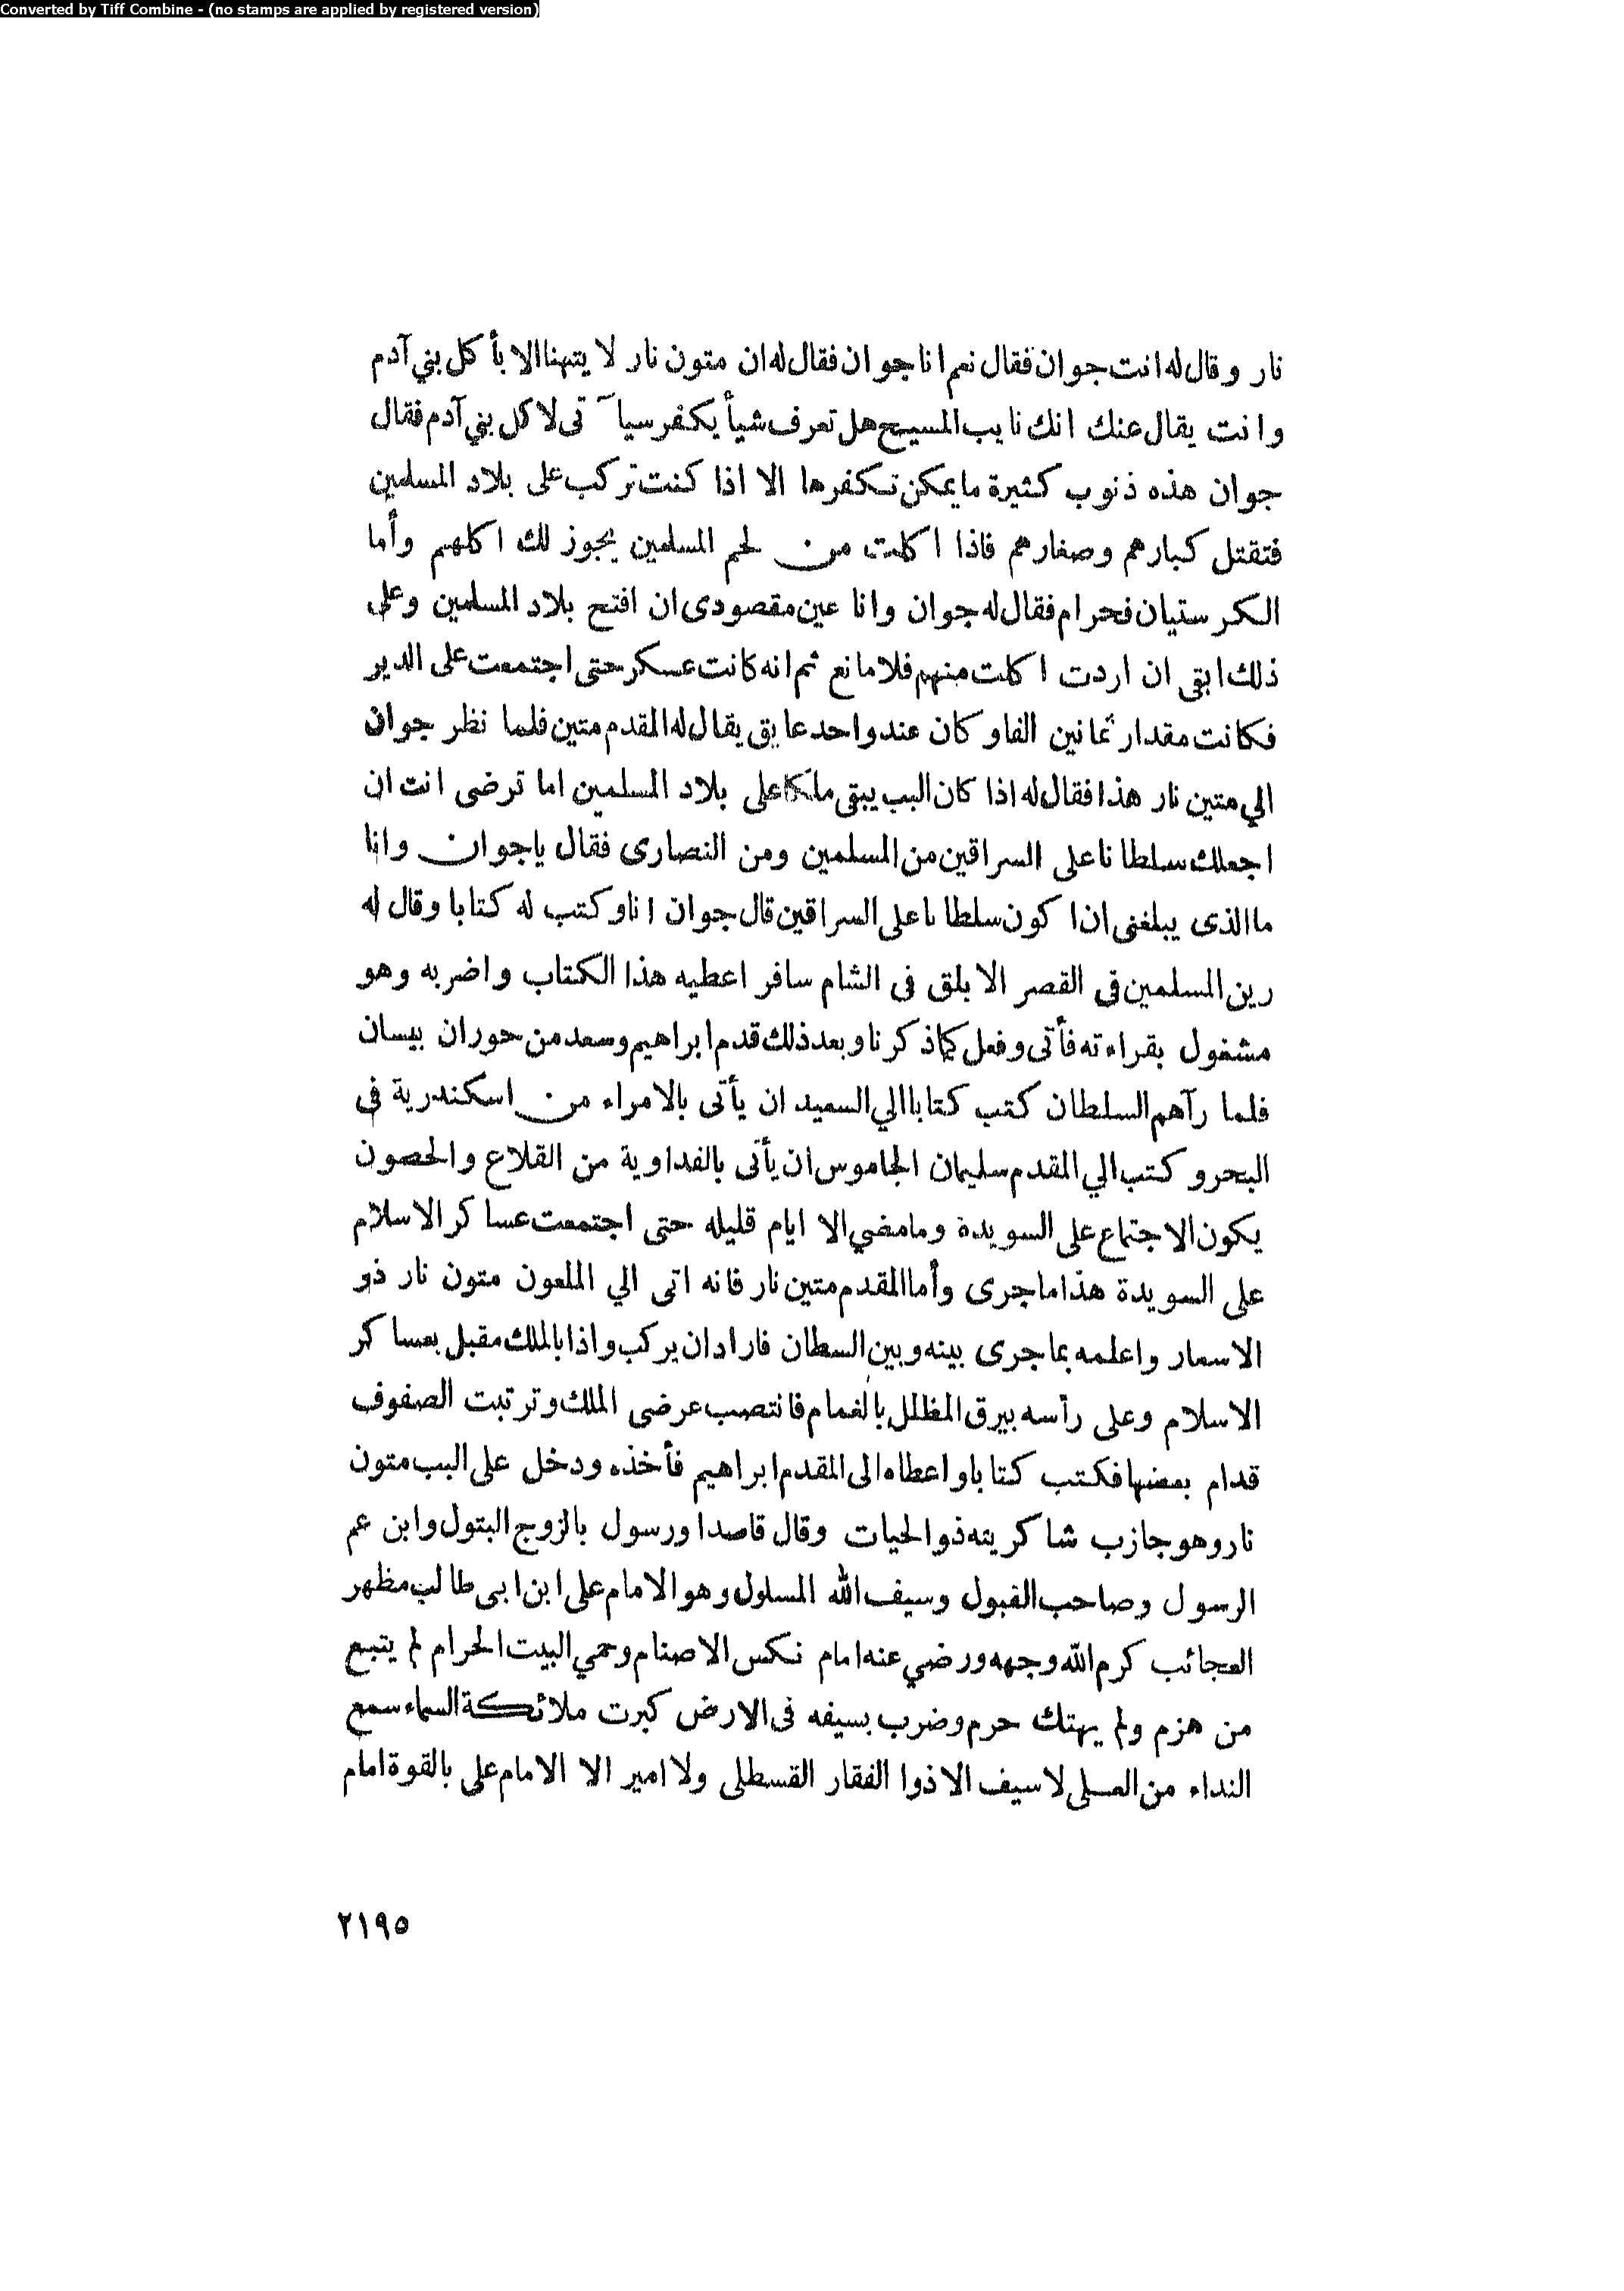 Converted by Tiff Combine - (no stamps are applied by registered version)
نار وقال له انت جوان فقال نعم انا جوان فقال له ان متون نار لا يتهنا الا بأكل بني آدم
وانت يقال عنك انك نايب المسيح هل تعرف شيأ يكفر سيآتى لاكل بني آدم فقال
جوان هذه ذنوب كثيرة ما يمكن تكفرها الا اذا كنت تركب على بلاد المسلمين
فتقتل كبارهم وصغارهم فاذا اكلت من لحم المسلمين يجوز لك اكلهم وأما
الكرستيان فحرام فقال له جوان وانا عين مقصودى ان افتح بلاد المسلمين وعلى
ذلك ابقى ان اردت اكلت منهم فلا مانع ثم انه كانت عسكر حتى اجتمعت على الدير
فكانت مقدار ثمانين الفا وكان عند واحد عايق يقال له المقدم متين فلما نظر جوان
الي متين نار هذا فقال له اذا كان البب يبقى ملكا على بلاد المسلمين اما ترضى انت ان
اجعلك سلطانا على السراقين من المسلمين ومن النصارى فقال ياجوان وانا
ما الذى يبلغنى ان اكون سلطانا على السراقين قال جوان انا وكتب له كتابا وقال له
رين المسلمين فى القصر الابلق فى الشام سافر اعطيه هذا الكتاب واضربه وهو
مشغول بقراءته فأتى وفعل كما ذكرنا وبعد ذلك قدم ابراهيم وسعد من حوران بيسان
فلما رآهم السلطان كتب كتابا الي السعيد ان يأتى بالامراء من اسكندرية فى
البحر وكتب الي المقدم سليمان الجاموس ان يأتى بالفداوية من القلاع والحصون
يكون الاجتماع على السويدة وما مضي الا ايام قليله حتى اجتمعت عساكر الاسلام
على السويدة هذا ما جرى وأما المقدم متين نار فانه اتى الي الملعون متون نار ذو
الاسعار واعلمه بما جرى بينه وبين السطان فاراد ان يركب واذا بالملك مقبل بعساكر
الاسلام وعلى رأسه بيرق المظلل بالغمام فانتصب عرضى الملك وترتبت الصفوف
قدام بعضها فكتب كتابا واعطاه الى المقدم ابراهيم فأخذه ودخل على البب متون
نار وهو جازب شاكريته ذو الحيات وقال قاصدا ورسول بالزوج البتول وابن عم
الرسول وصاحب القبول وسيف الله المسلول وهو الامام على ابن ابى طالب مظهر
العجائب كرم الله وجهه ورضي عنه امام نكس الاصنام وحمي البيت الحرام لم يتبع
من هزم ولم يهتك حرم وضرب بسيفه فى الارض كبرت ملائكة السماء سمع
النداء من العلى لا سيف الا ذوا الفقار القسطلى ولا امير الا الامام على بالقوة امام
٢١٩٥